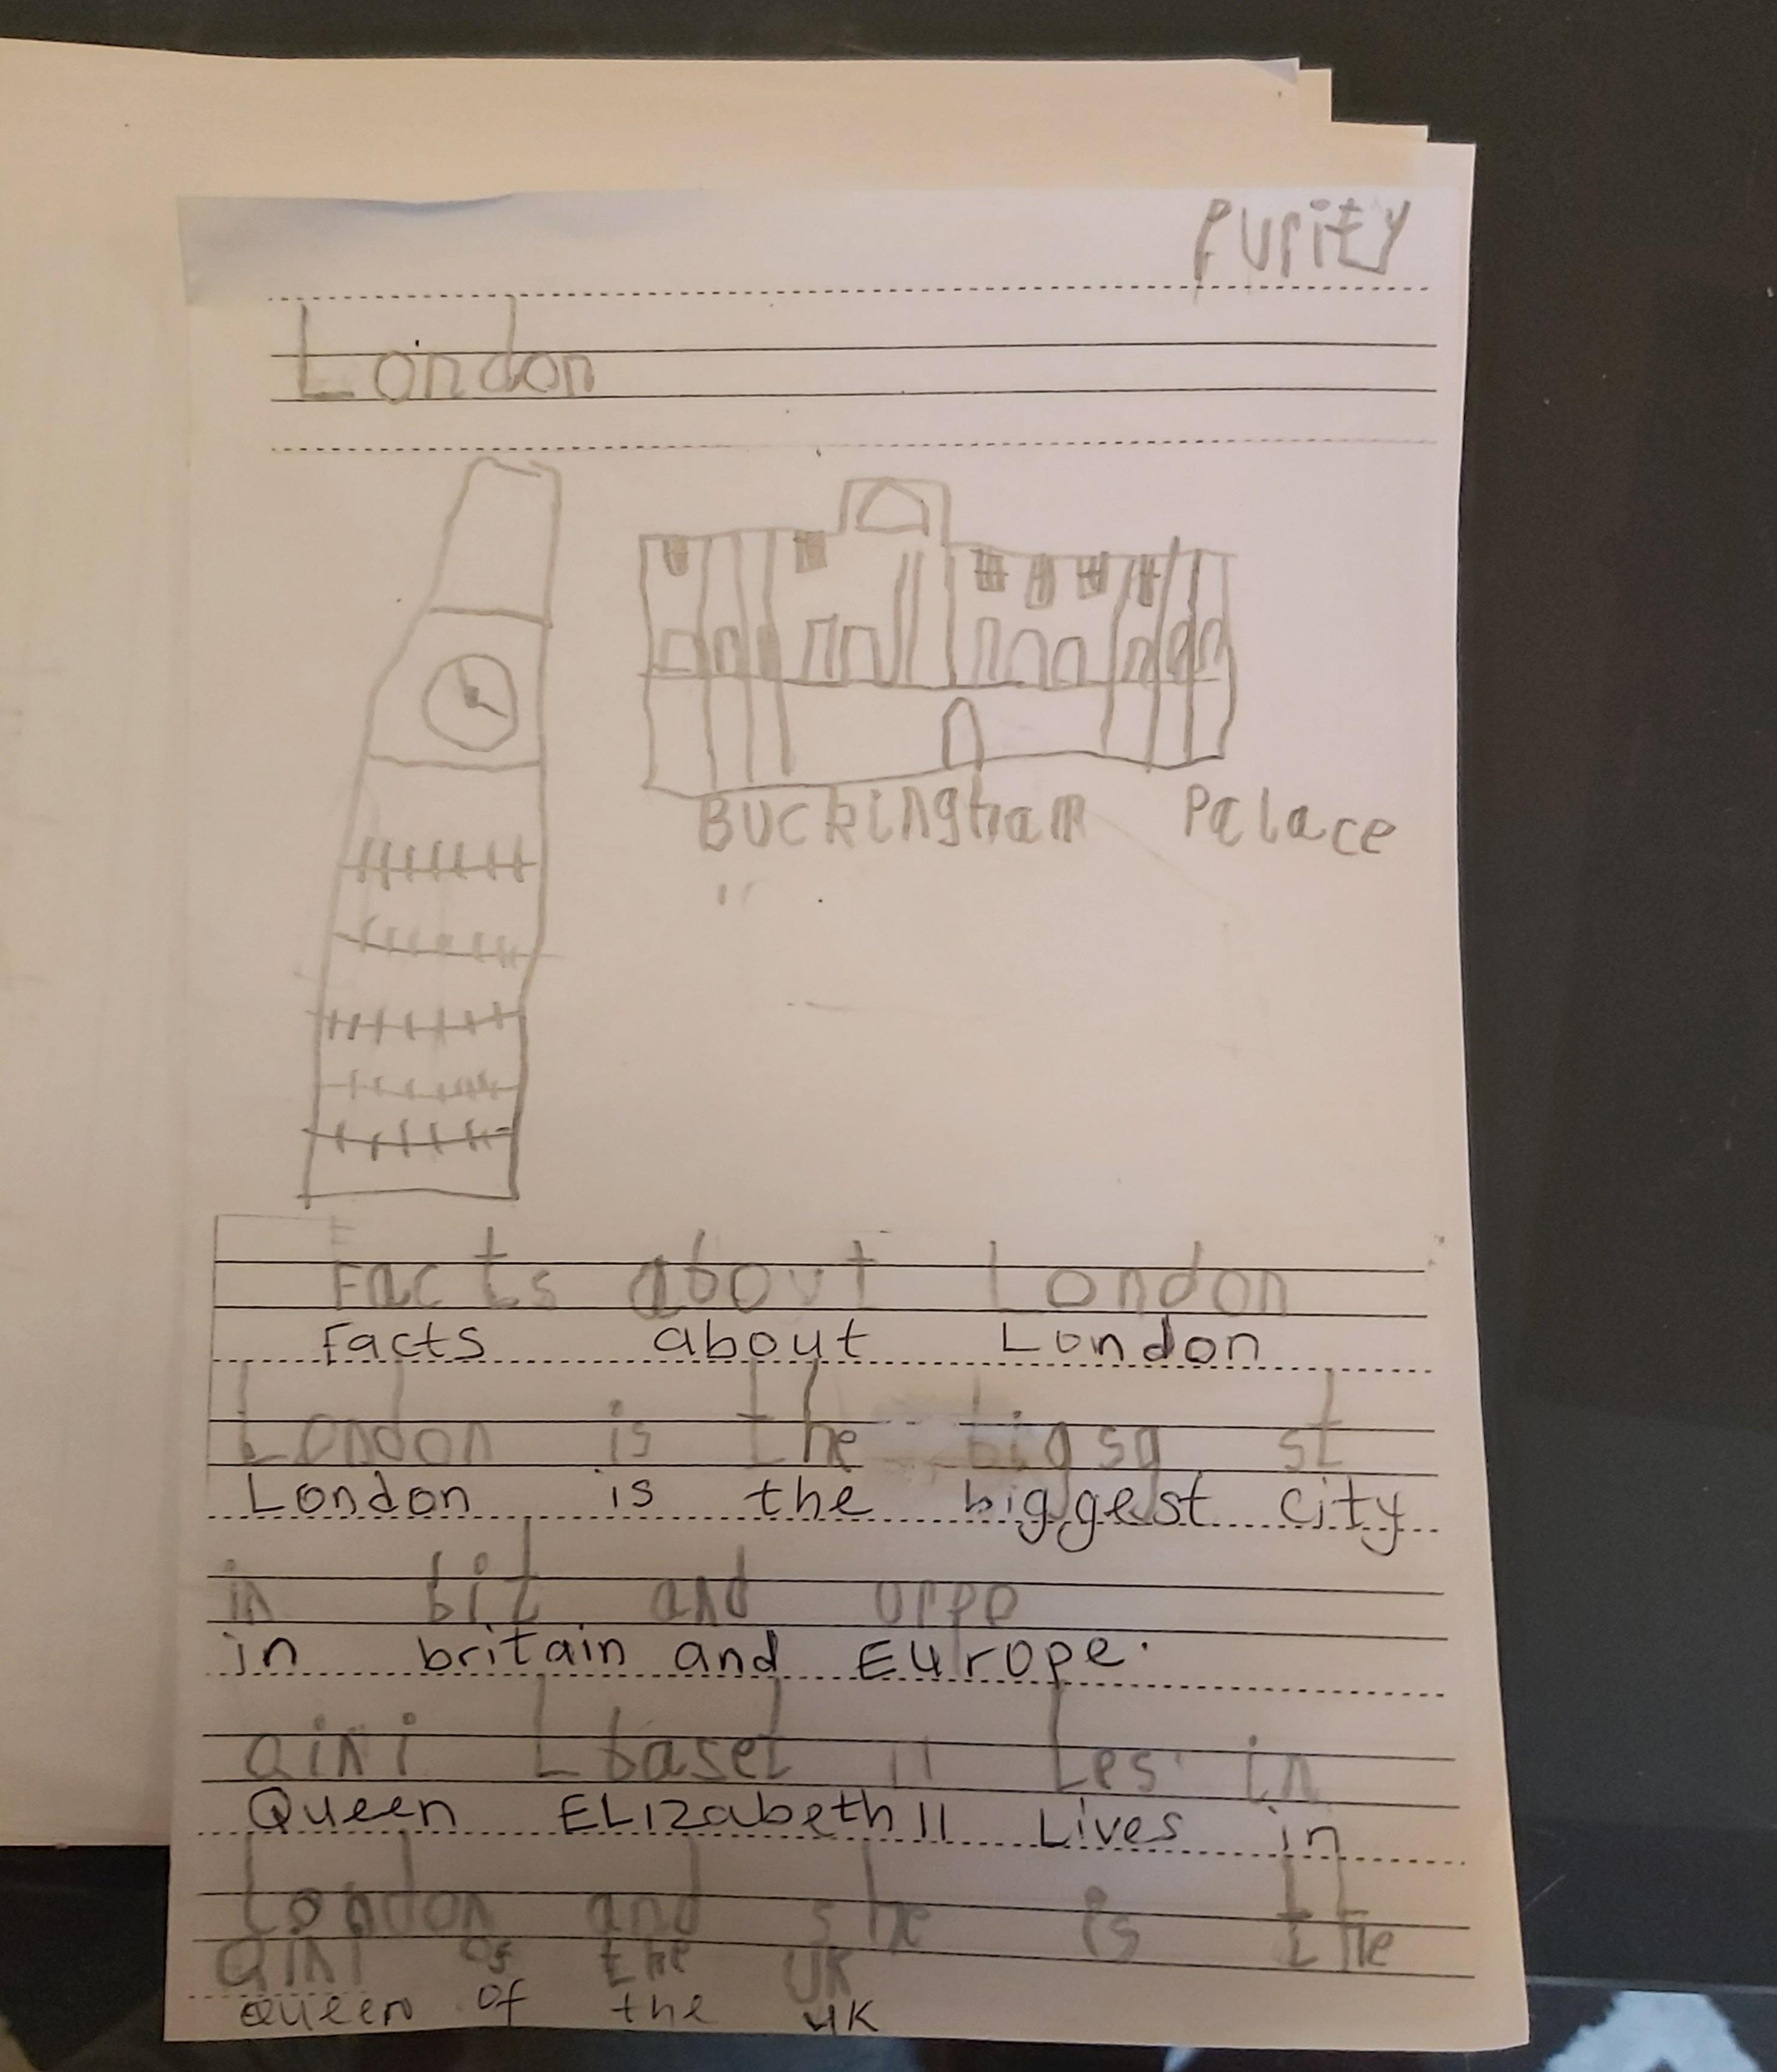 Purity
London
Buckingham Palace
Facts about London
Facts about London
London is the bigsg st
London is the biggest city
in bit and urpo
in britain and Europe.
qini Lbaset II Les in
Queen ELIzabeth II Lives in
London and she is the
Qini os the UK
Queen of the UK